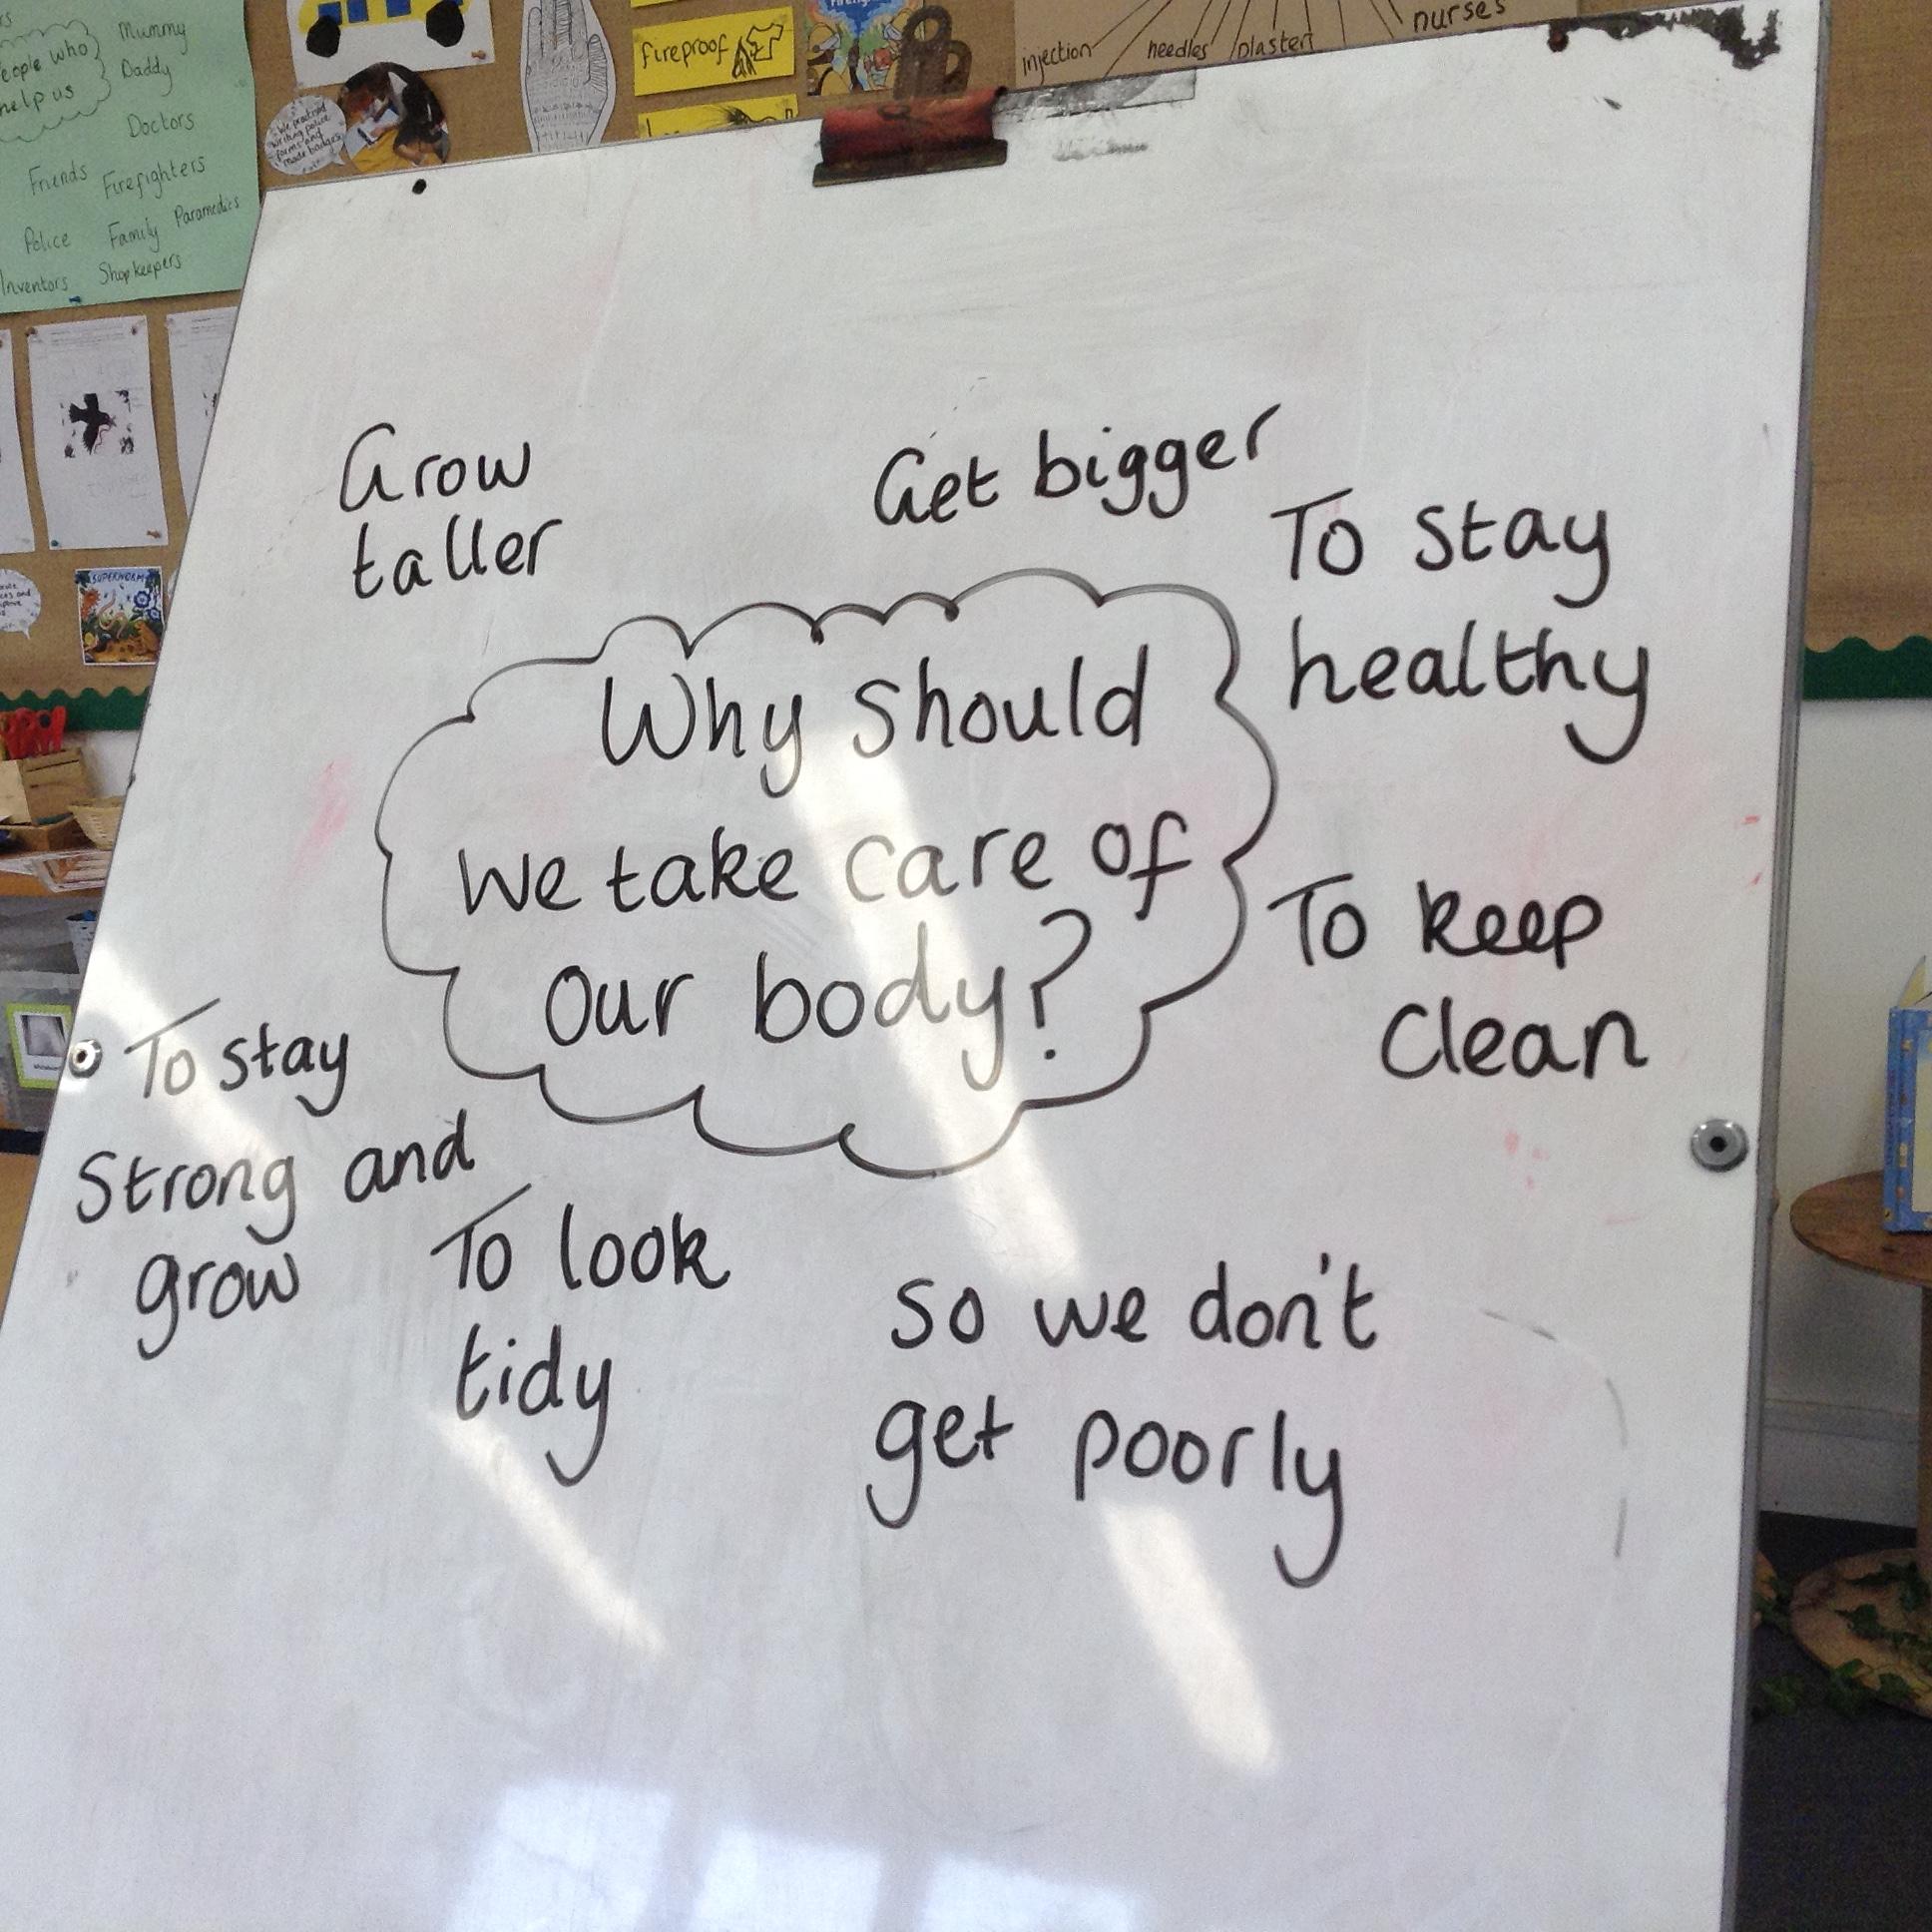 People who
help us
Mummy
Daddy
Doctors
Friends
Firefighters
Paramedics
Police
Family
Inventors
Shopkeepers
We practised
writing police
forms and
made badges
fireproof
injection
needles
plasters
nurses
SUPERWORM
Grow
taller
Get bigger
To stay
healthy
Why should
we take care of
our body?
To keep
clean
To stay
strong and
grow
To look
tidy
So we don't
get poorly